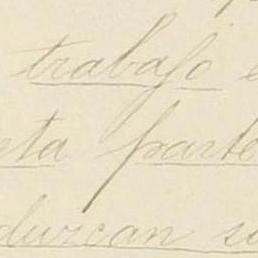 trabajo e
eta parte
duzcan su